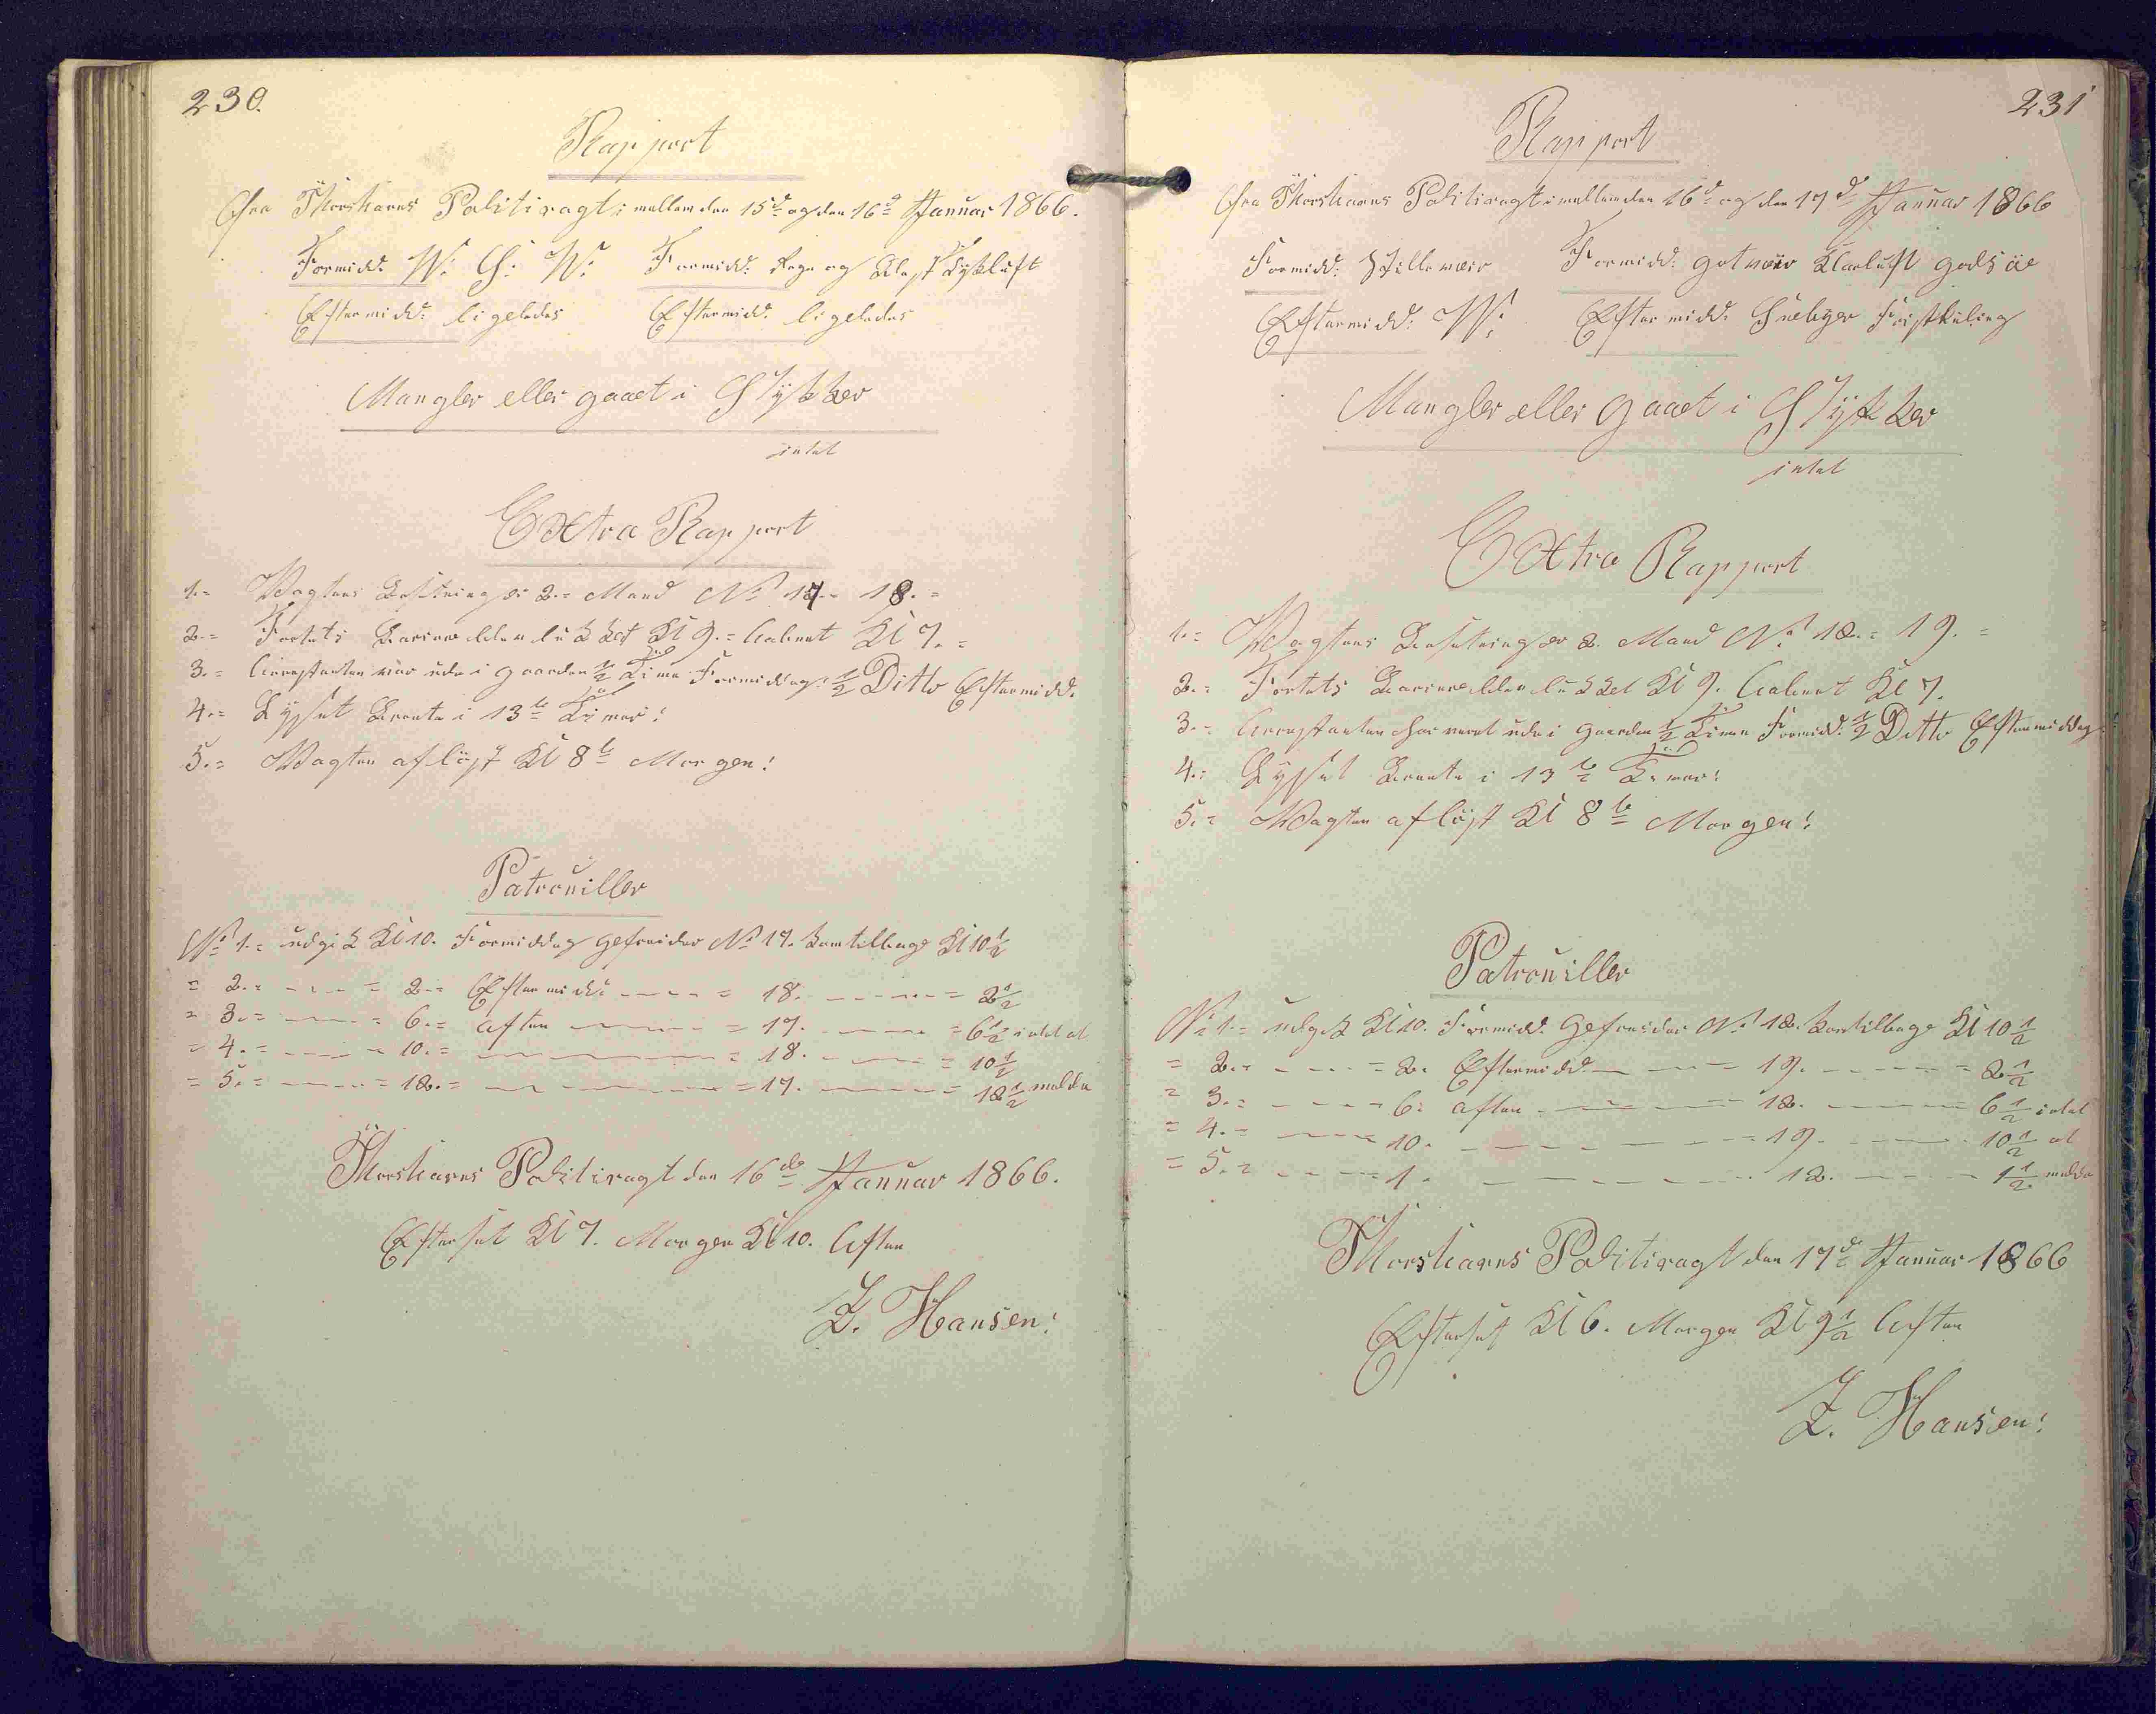 230.
Rapport
fra Thorshavns Politivagt imellem den 15d og den 16d Januar 1866.
Formidd: W: S: W: Formidd: Regn og Blæst Tykluft
Eftermidd: ligeledes Eftermidd: ligeledes
Mangler eller gaaet i Stykker
intet
Extra Rapport
1.= Vagtens Besætning er 2.= Mand No 17.= 18.=
2.= Fortets Barriere blev lukket Kl 9.= aabnet Kl 7.=
3.= Arrestanten var ude i gaarden 1/2 Time Formiddag: 1/2 Ditto Eftermidd:
4.= Lyset brænte i 13 Timer!
5.= Vagten afløst Kl 8te Morgen!
Patrouiller
No 1.= udgik Kl 10. Formiddag gefreider No 17. kom tilbage Kl 10 1/2
= 2.= — = 2.= Eftermidd: — = 18. — = 2 1/2
= 3.= — = 6.= aften — = 17. — = 6 1/2 intet at
= 4.= — = 10.= — = 18. — = 10 1/2
= 5.= — = 12.= — = 17. — = 12 1/2 melde
Thorshavns Politivagt den 16de Januar 1866.
Efterset Kl 7. Morgen Kl 10. Aften
Z. Hansen!
231
Rapport
fra Thorshavns Politivagt imellem den 16d og den 17d Januar 1866
Formidd: Stille veir Formidd: got veir Klarluft
Eftermidd: W: Eftermidd: Snebyger Friskkuling
Mangler eller gaaet i Stykker
intet
Extra Rapport
1.= Vagtens Besætning er 2. Mand No 18.= 19.=
2.= Fortets Barriere blev lukket Kl 9. aabnet Kl 7.
3.= Arrestanten har veret ude i gaarden 1/2 Time Formidd: 1/2 Ditto Eftermiddag
4.= Lyset brænte i 13 Timer!
5.= Vagten afløst Kl 8te Morgen!
Patrouiller
No 1.= udgik Kl 10. Formidd: Gefreider No 18. kom tilbage Kl 10 1/2
= 2.= — = 2. Eftermidd — = 19. — = 2 1/2
= 3.= — 6: aften — 18. — 6 1/2 intet
= 4.= — 10. — = 19. — 10 1/2 at
= 5.= — 1. — 18. — 1 1/2 melde
Thorshavns Politivagt den 17d Januar 1866
Efterset Kl 6. Morgen Kl 9 1/2 Aften
Z. Hansen!